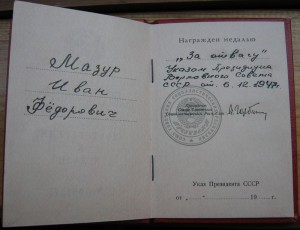 Мазур
Иван
Фёдорович
Награжден медалью
„За отвагу"
Указом Президиума
Верховного Совета
СССР от 6.12.1947.
Указ Президента СССР
от „ " 19 г.